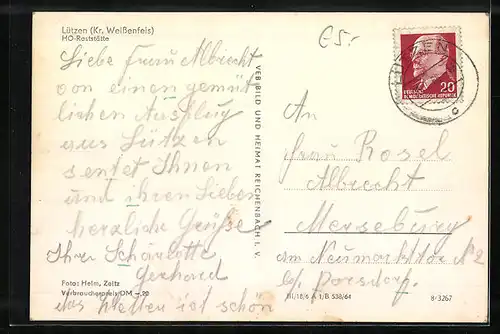 Lützen (Kr. Weißenfels)
HO-Raststätte
€5,-
Liebe Frau Albrecht
von einen gemüt
lichen Ausflug
aus Lützen
sentet Ihnen
und ihren Lieben
herzliche Grüße
Ihre Scharlotte
Gerhard
das Wetter ist schön
Foto: Helm, Zeitz
Verbraucherpreis DM –,20
VEB BILD UND HEIMAT REICHENBACH I. V.
DEUTSCHE
DEMOKRATISCHE REPUBLIK
20
LÜTZEN
c
An
Frau Rosel
Albrecht
Merseburg
am Neumarkttor № 2
bei Porsdorf
III/18/6 A 1/B 538/64
8/3267